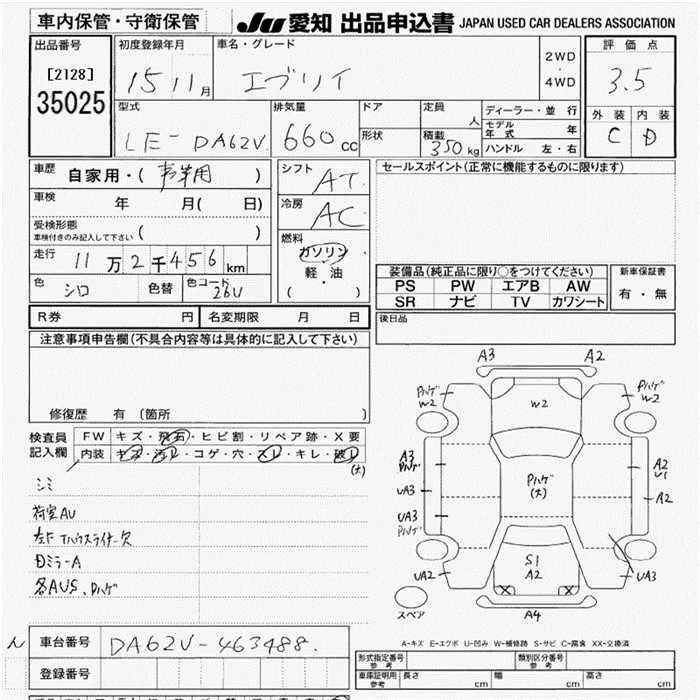 車内保管・守衛保管
JU 愛知 出品申込書 JAPAN USED CAR DEALERS ASSOCIATION
出品番号
[2128]
35025
初度登録年月
15 11 月
車名・グレード
エブリイ
2WD
・
4WD
評価点
3.5
外装 内装
C D
型式
LE- DA62V
排気量
660 cc
ドア
形状
定員
人
積載
350 kg
ディーラー・並行
モデル年式 年
ハンドル 左・右
車歴 自家用・( 事業用 )
車検 年 月( 日)
受検形態
車検付きのみ記入して下さい ( )
走行 11 万 2 千 456 km
色 シロ 色替 色コード 26U
シフト AT
冷房 AC
燃料
ガソリン
軽・油
( )
セールスポイント(正常に機能するものに限ります)
装備品(純正品に限り○をつけてください)
PS PW エアB AW
SR ナビ TV カワシート
新車保証書
有・無
R券 円 名変期限 月 日
後日品
注意事項申告欄(不具合内容等は具体的に記入して下さい)
修復歴 有 (箇所 )
検査員
記入欄
FW キズ・飛石・ヒビ割・リペア跡・X要
内装 キズ・汚レ・コゲ・穴・スレ・キレ・破レ
(大)
シミ
荷室AU
左F Tハウスライナー欠
Dミラー A
各AUS、Pハゲ
A3 A2
Pハゲ
W2
W2
Pハゲ
W2
A3
Pハゲ
UA3
UA3
Pハゲ
UA2
Pハゲ
(大)
A2
U1
A2
UA3
S1
A2
A4
スペア
A-キズ E-エクボ U-凹み W-補修跡 S-サビ C-腐食 XX-交換済
車台番号 DA62V-463488.
登録番号
形式指定番号
参考
類別区分番号
参考
車庫証明用
参考
長さ cm 幅 cm 高さ cm